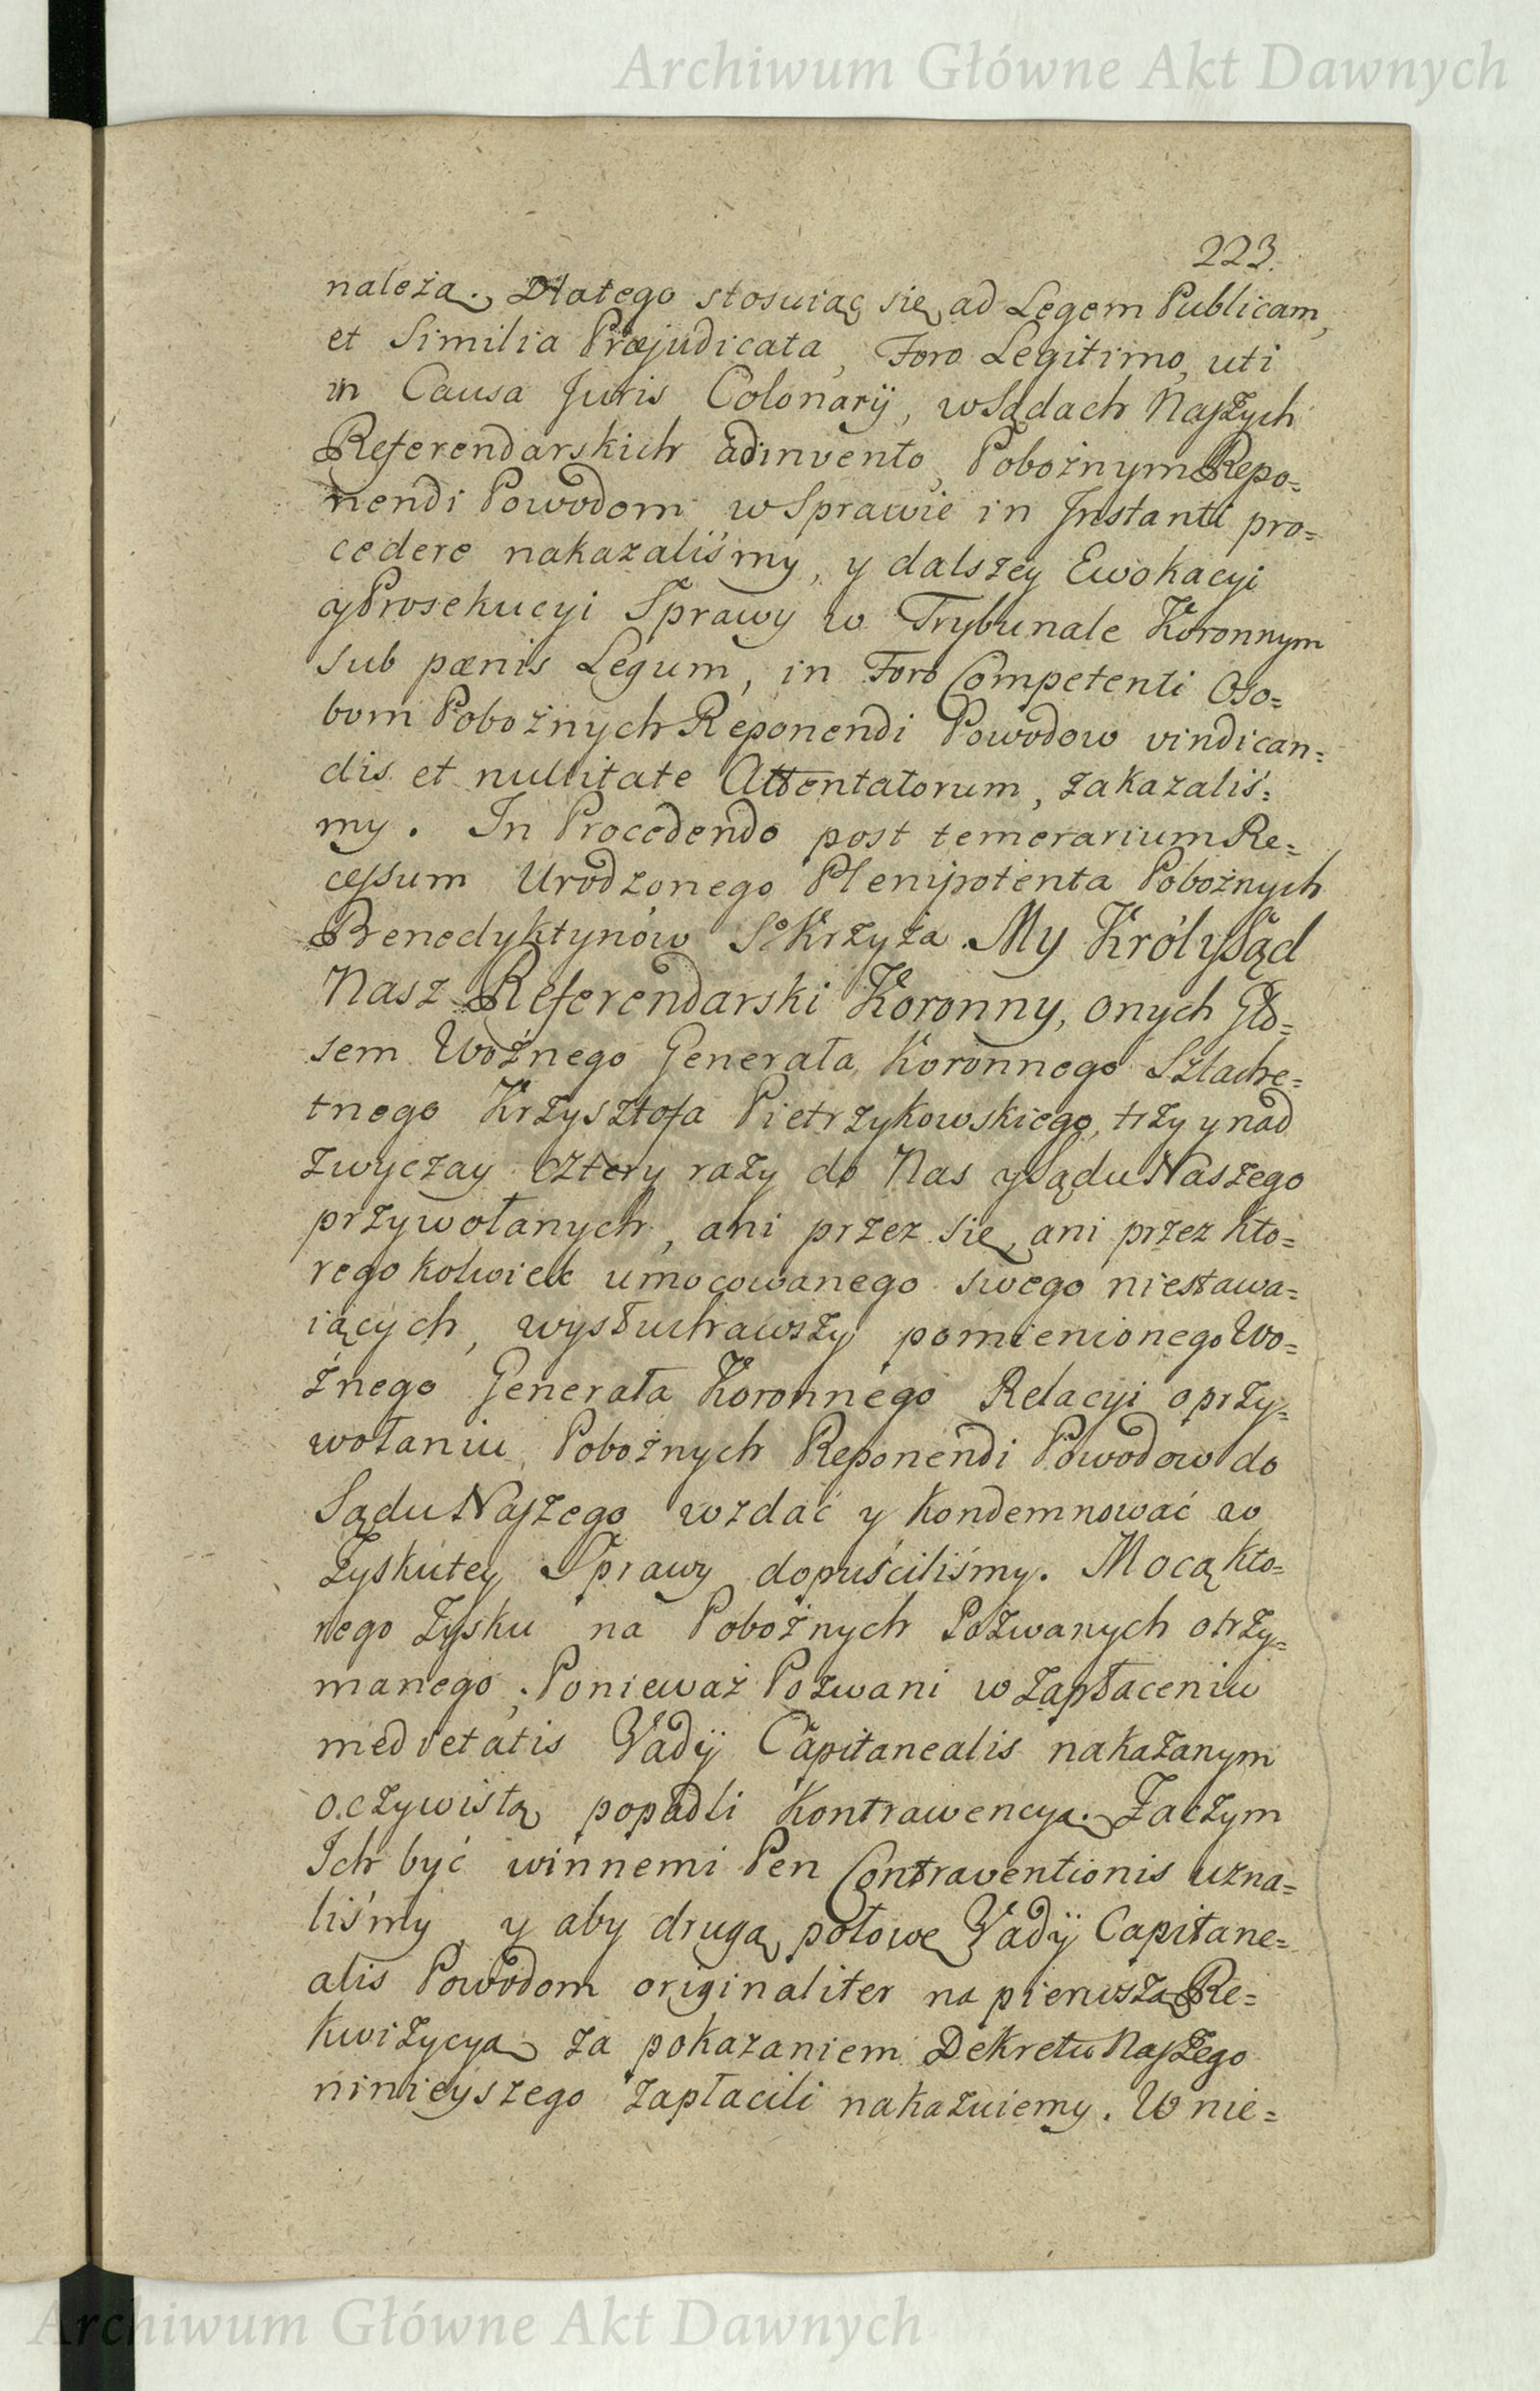 Archiwum Główne Akt Dawnych
223.
należą. Dlatego stosuiąc się ad Legem Publicam,
et Similia Præjudicata, Foro Legitimo, uti
in Causa Juris Colonarÿ, w Sądach Naszych
Referendarskich adinvento, Pobożnym Repo=
nendi Powodom w Sprawie in Instanti pro=
cedere nakazaliśmy, y dalszey Ewokacyi
y Prosekucyi Sprawy w Trybunale Koronnym
sub pœnis Legum, in Foro Competenti Oso=
bom Pobożnych Reponendi Powodow vindican=
dis et nullitate Attentatorum, zakazaliś=
my. In Procedendo post temerarium Re=
cessum Urodzonego Plenipotenta Pobożnych
Benedyktynów S° Krzyża. My Król y Sąd
Nasz Referendarski Koronny, onych Gło=
sem Woźnego Generała Koronnego Szlache=
tnego Krzysztofa Pietrzykowskiego, trzy y nad
zwyczay cztery razy do Nas y Sądu Naszego
przywołanych, ani przez się, ani przez kto=
rego kolwiek umocowanego swego niestawa=
iących, wysłuchawszy pomienionego Wo=
źnego Generała Koronnego Relacyi o przy=
wołaniu Pobożnych Reponendi Powodow do
Sądu Naszego wzdać y kondemnować w
Zysku tey Sprawy dopuściliśmy. Mocą kto=
rego Zysku na Pobożnych Pozwanych otrzy=
manego, Ponieważ Pozwani w zapłaceniu
medietatis Vadÿ Capitanealis nakazanym
oczywistą popadli Kontrawencyą. Zaczym
Ich być winnemi Pen Contraventionis uzna=
liśmy, y aby drugą połowę Vadÿ Capitane=
alis Powodom originaliter na pierwszą Re=
kwizycyą za pokazaniem Dekretu Naszego
ninieyszego zapłacili nakazuiemy. W nie=
Archiwum Główne Akt Dawnych